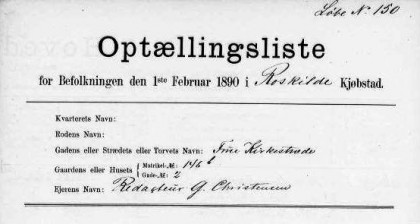 Løbe № 150
Optællingsliste
for Befolkningen den 1ste Februar 1890 i Roskilde Kjøbstad.
Kvarterets Navn:
Rodens Navn:
Gadens eller Strædets eller Torvets Navn: Frue Kirkestræde
Gaardens eller Husets { Matrikel-№: 146 b
Gade-№: 2
Ejerens Navn: Redacteur G. Christensen